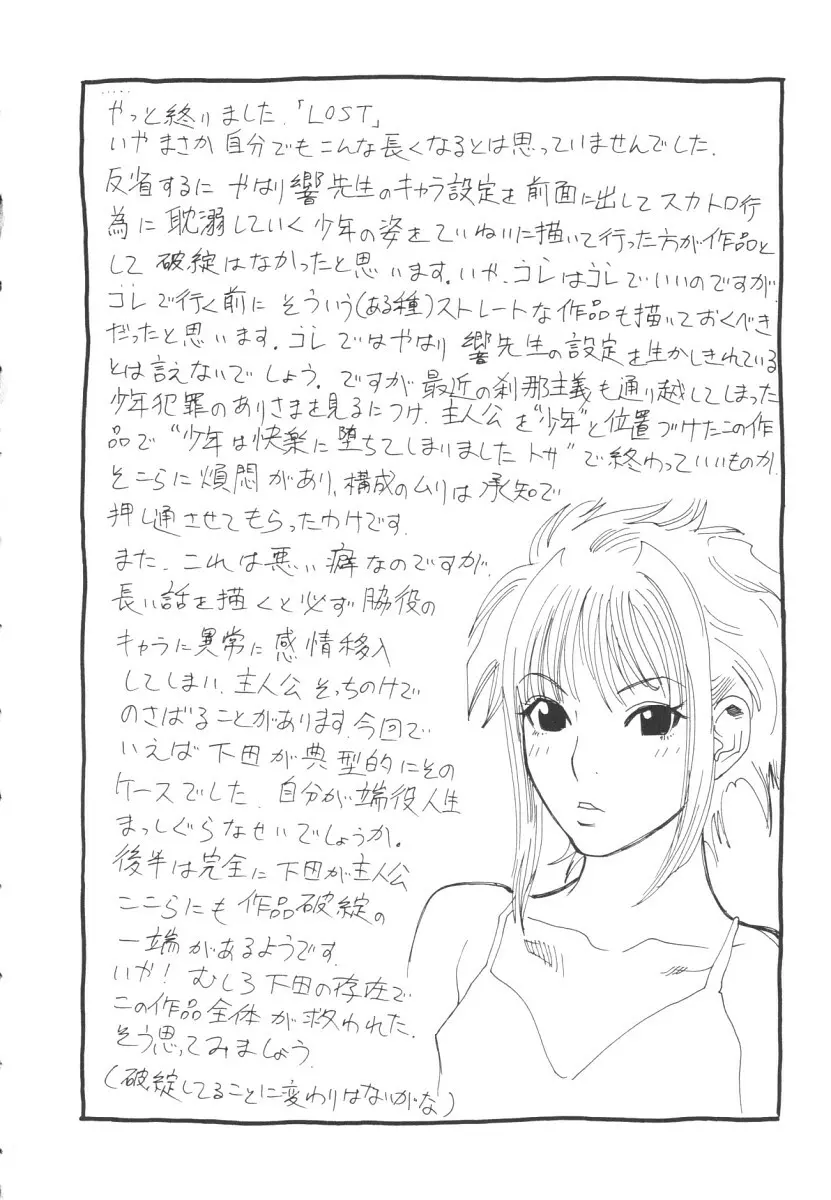 やっと終りました.「LOST」
いやまさか自分でもこんな長くなるとは思っていませんでした.
反省するに やはり響先生のキャラ設定を前面に出してスカトロ行
為に耽溺していく少年の姿をていねいに描いて行った方が作品と
して破綻はなかったと思います.いや.コレはコレでいいのですが.
コレで行く前に そういう(ある種)ストレートな作品も描いておくべき
だったと思います.コレではやはり響先生の設定を生かしきれている
とは言えないでしょう.ですが最近の刹那主義も通り越してしまった
少年犯罪のありさまを見るにつけ.主人公を"少年"と位置づけたこの作
品で"少年は快楽に堕ちてしまいましたトサ"で終わっていいものか.
そこらに煩悶があり.構成のムリは承知で
押し通させてもらったわけです.
また.これは悪い癖なのですが.
長い話を描くと必ず脇役の
キャラに異常に感情移入
してしまい.主人公そっちのけで
のさばることがあります.今回で
いえば下田が典型的にその
ケースでした.自分が端役人生
まっしぐらなせいでしょうか。
後半は完全に下田が主人公
ここらにも作品破綻の
一端があるようです.
いや!むしろ下田の存在で
この作品全体が救われた.
そう思ってみましょう.
(破綻してることに変わりはないがな)